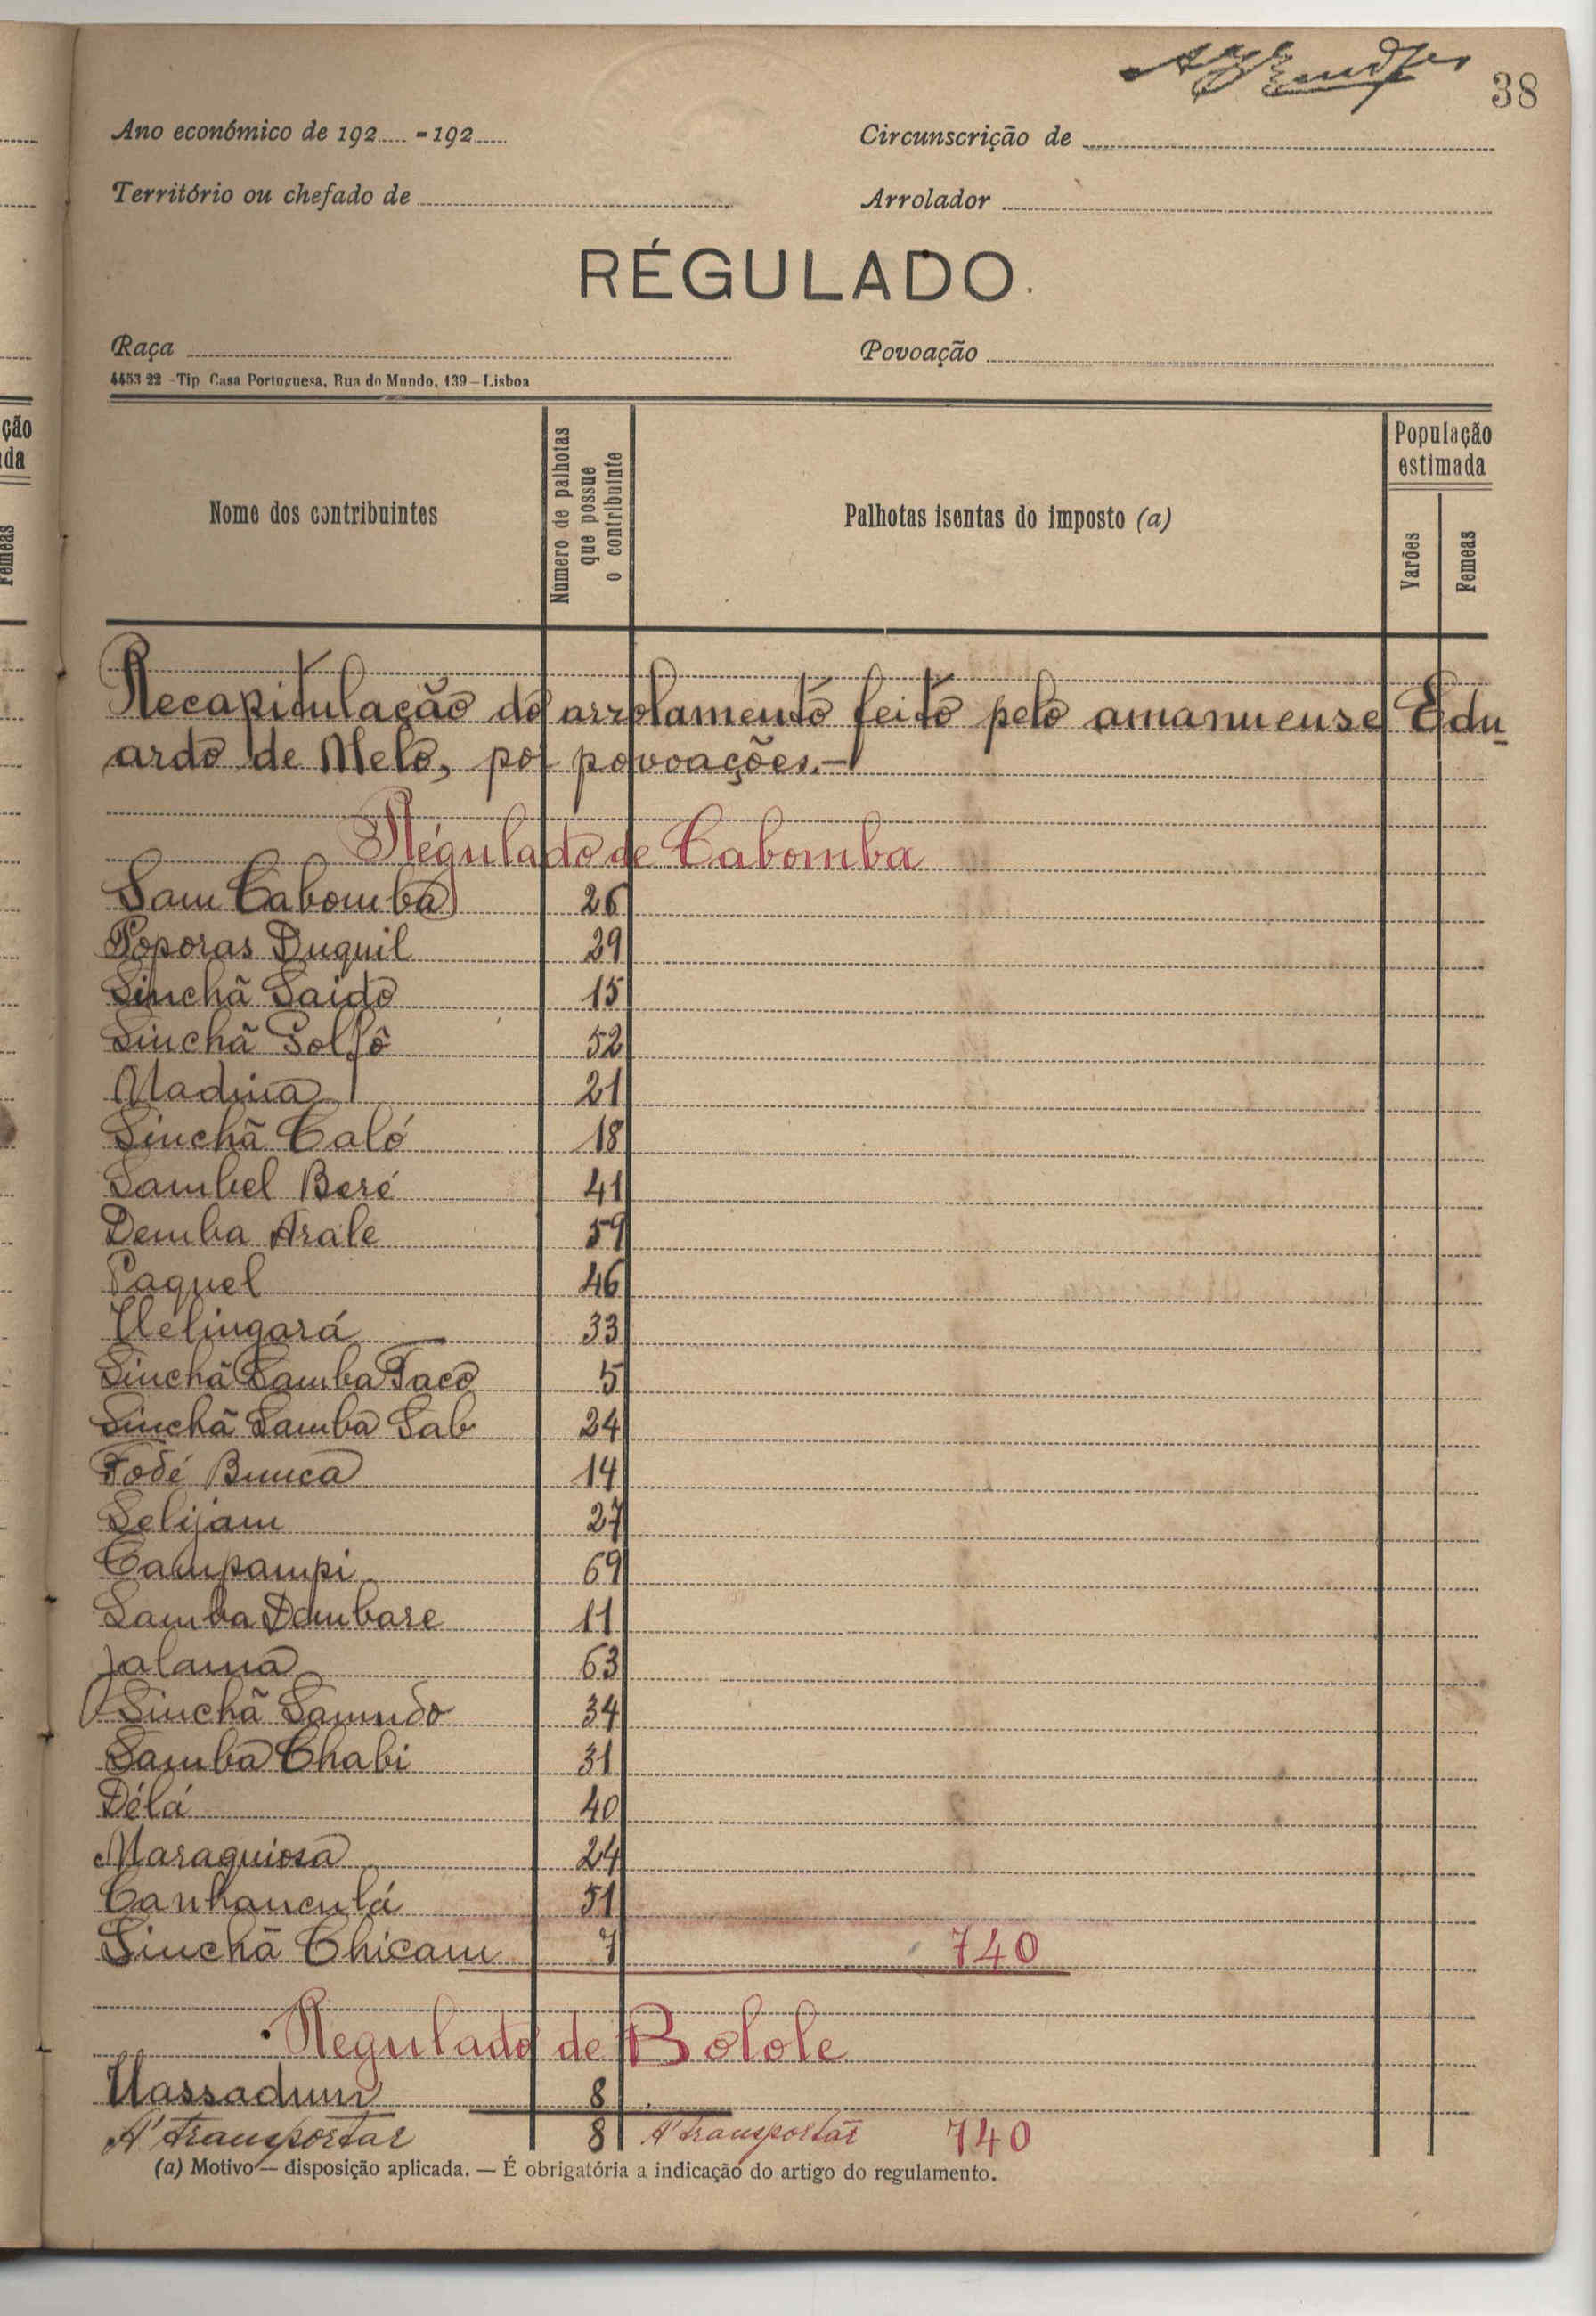 38
Ano económico de 192..... - 192.....
Circunscrição de
Território ou chefado de
Arrolador
RÉGULADO.
Raça
Povoação
4453 22 - Tip Casa Portuguesa, Rua do Mundo, 139 - Lisboa
Nome dos contribuintes
Numero de palhotas que possue o contribuinte
Palhotas isentas do imposto (a)
População estimada
Varões
Femeas
Recapitulação do arrolamento feito pelo amanuense Edu-
ardo de Melo, por povoações.-
Régulado de Cabomba
Sam Cabomba 26
Poporas Duquil 29
Sinchã Saido 15
Sinchã Solfô 52
Madina 21
Sinchã Caló 18
Sambel Beré 41
Demba Arale 59
Paquel 46
Uelingará 33
Sinchã Samba Taco 5
Sinchã Samba Sab 24
Fodé Bunca 14
Selijam 27
Campampi 69
Samba Dambare 11
Jalama 63
Sinchã Samudo 34
Samba Chabi 31
Délá 40
Maraquiosa 24
Canhanculá 51
Sinchã Chicam 7 740
Regulado de Bolole
Uassadum 8
A' transportar 8 A' transportar 740
(a) Motivo — disposição aplicada. — É obrigatória a indicação do artigo do regulamento.
ção
da
Femeas